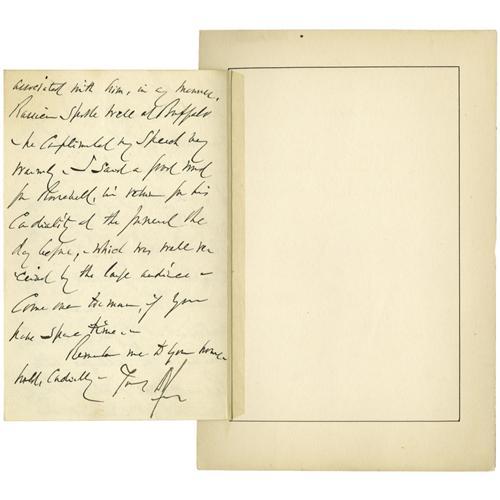 associated with him, in any manner.
Russia Spoke well at Buffalo
he Complimented my Speech very
warmly – I said a good word
for Roosevelt, in return for his
Cordiality at the funeral the
day before, – which was well re
ceived by the large audience –
Come over tomorrow, if you
have Spare time. –
Remember me to your house-
hold, Cordially –